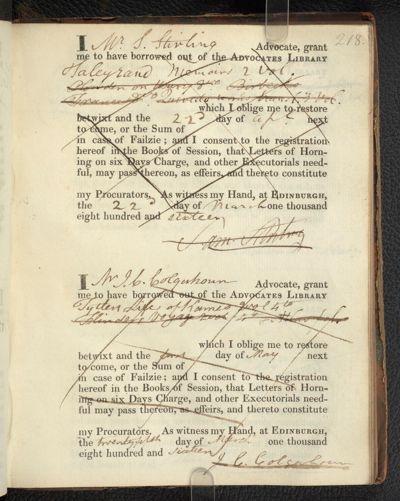 218.
I Mr S. Stirling Advocate, grant
me to have borrowed out of the ADVOCATES LIBRARY
Taleyrand Memoirs 2 Vol.
which I oblige me to restore
betwixt and the 22d day of next
to come, or the Sum of
in case of Failzie; and I consent to the registration
hereof in the Books of Session, that Letters of Horn-
ing on six Days Charge, and other Executorials need-
ful, may pass thereon, as effeirs, and thereto constitute
my Procurators. As witness my Hand, at EDINBURGH,
the 22d day of March one thousand
eight hundred and sixteen
Stirling
I Mr J. C. Colquhoun Advocate, grant
me to have borrowed out of the ADVOCATES LIBRARY
Tytler Life of Kames 2 vol 4to
which I oblige me to restore
betwixt and the day of May next
to come, or the Sum of
in case of Failzie; and I consent to the registration
hereof in the Books of Session, that Letters of Horn-
ing on six Days Charge, and other Executorials need-
ful may pass thereon, as effeirs, and thereto constitute
my Procurators. As witness my Hand, at EDINBURGH,
the day of March one thousand
eight hundred and sixteen
J. C. Colquhoun